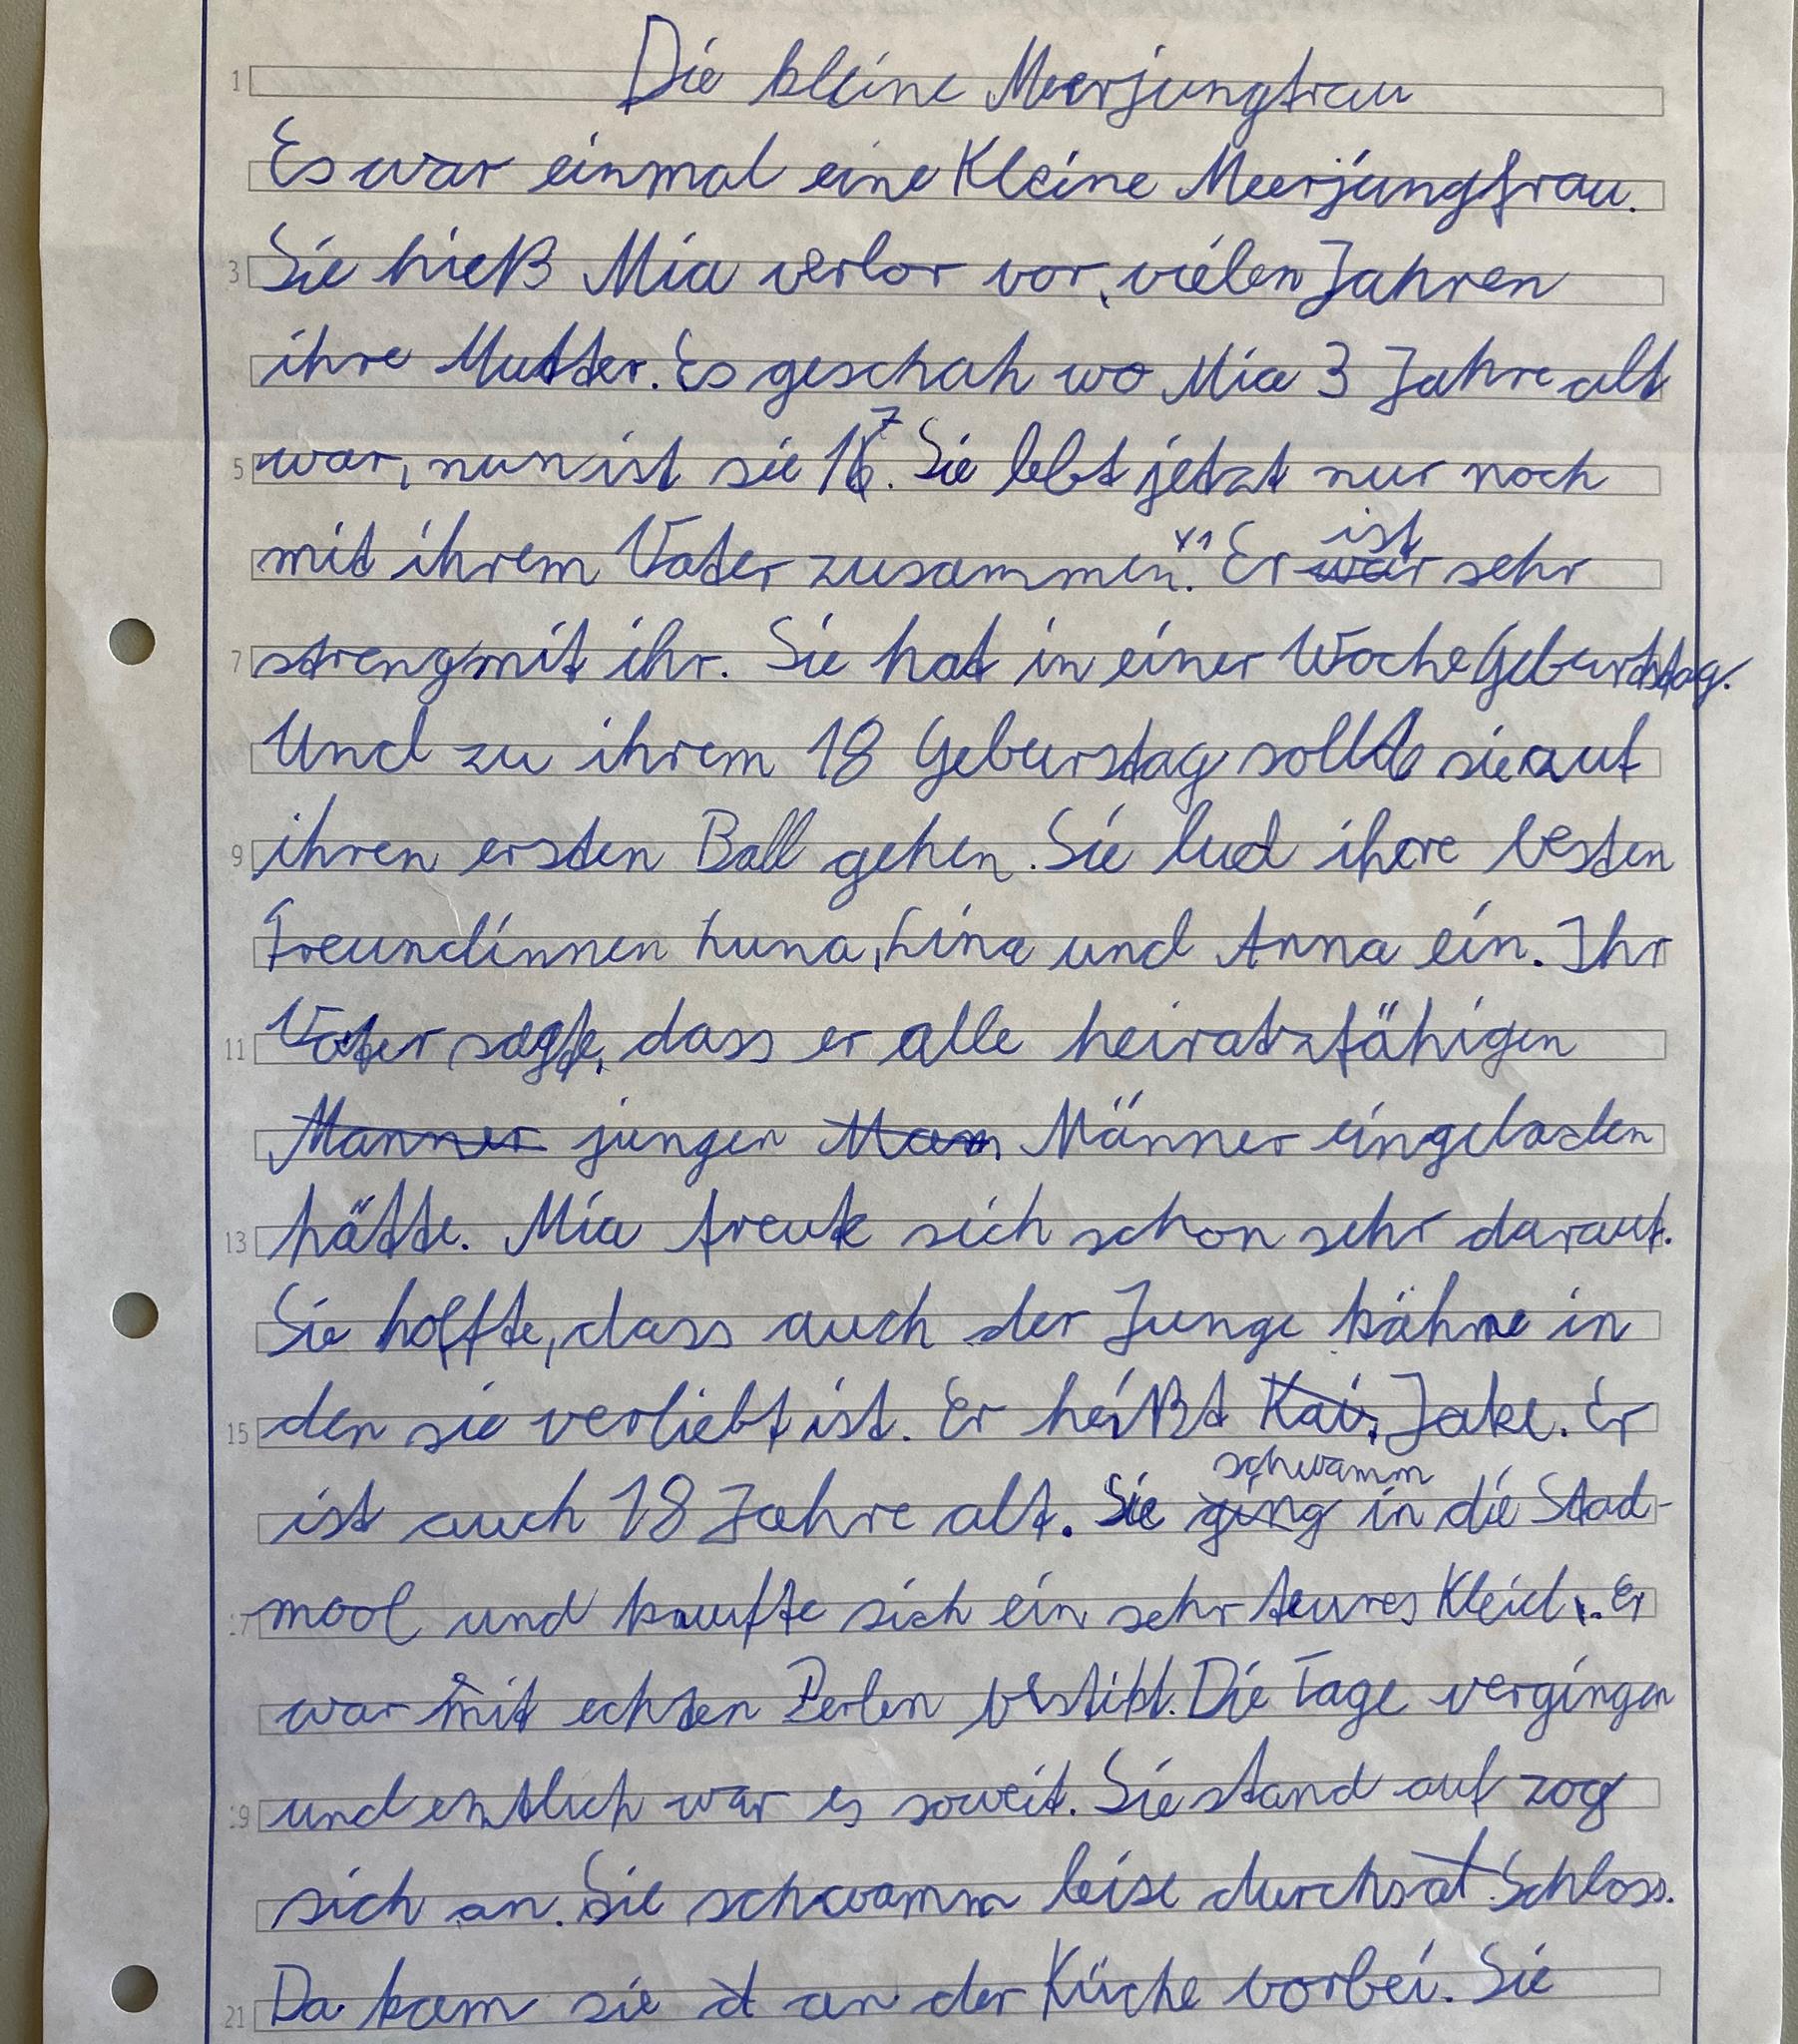 Die kleine Meerjungfrau
Es war einmal eine Kleine Meerjungfrau.
Sie hieß Mia verlor vor, vielen Jahren
ihre Mutter. Es geschah wo Mia 3 Jahre alt
war, nun ist sie 17. Sie lebt jetzt nur noch
mit ihrem Vater zusammen. Er ist sehr
streng mit ihr. Sie hat in einer Woche Geburtstag.
Und zu ihrem 18 Geburstag sollte sie auf
ihren ersten Ball gehen. Sie lud ihre besten
Freundinnen Luna, Lina und Anna ein. Ihr
Vater sagte, dass er alle heiratzfähigen
Manner jungen Mann Männer eingeladen
hätte. Mia freute sich schon sehr darauf.
Sie hoffte, dass auch der Junge kähme in
den sie verliebt ist. Er heißt Kai, Jake. Er
ist auch 18 Jahre alt. Sie schwamm in die Stad-
mool und kaufte sich ein sehr teures Kleid. Er
war mit echten Perlen bestikt. Die Tage vergingen
und entlich war es soweit. Sie stand auf zog
sich an. Sie schwamm leise durchs Schloss.
Da kam sie an der Küche vorbei. Sie
1
3
5
7
9
11
13
15
17
19
21